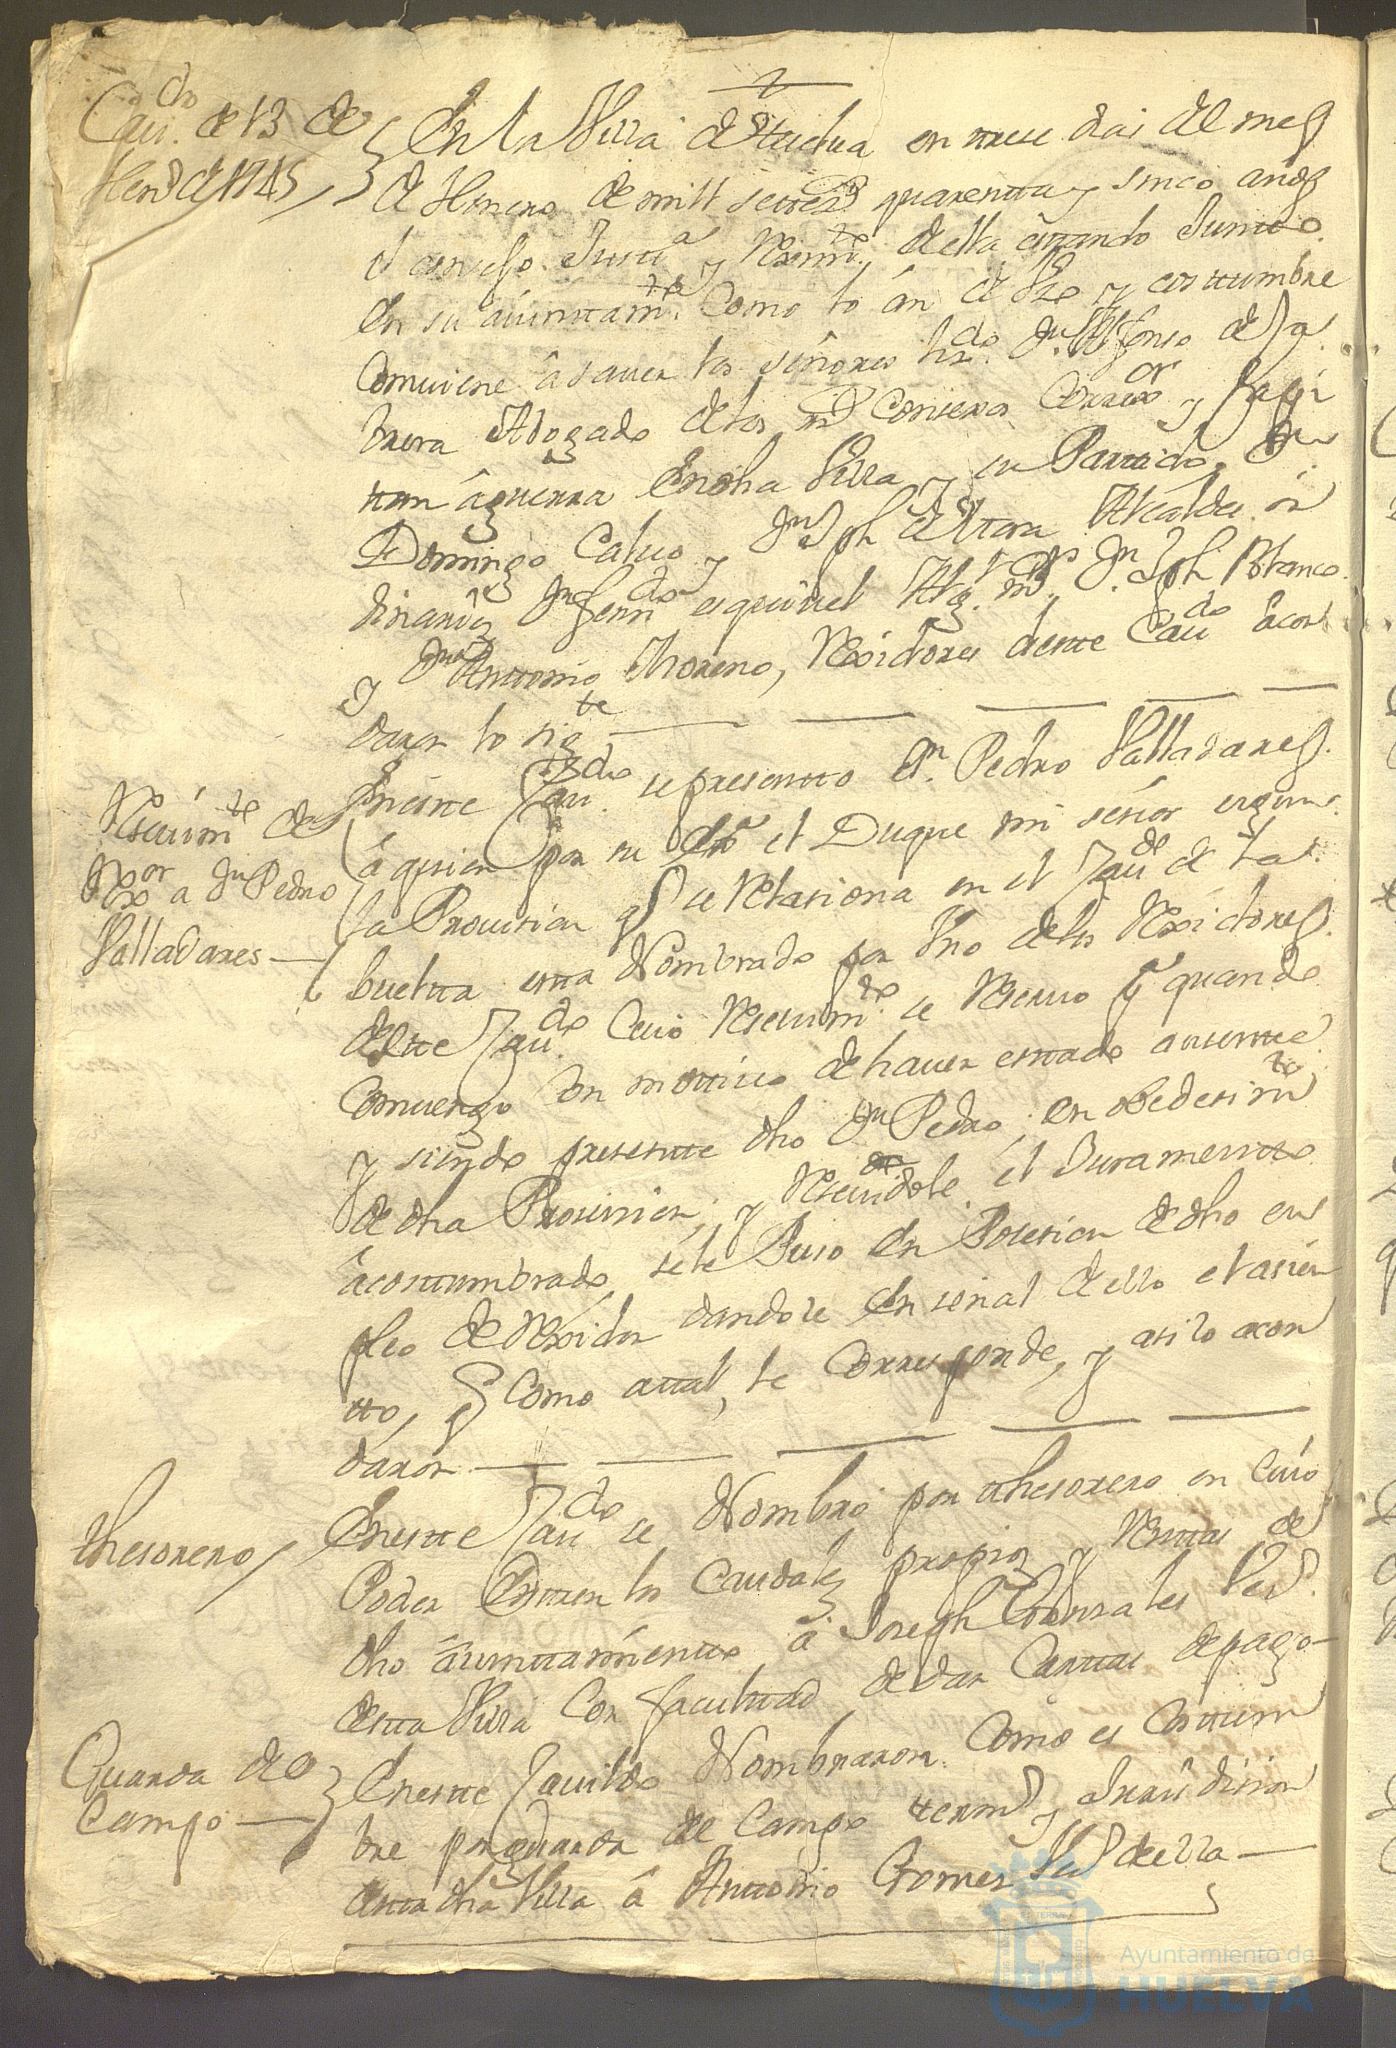 Cavdo de 13 de
Heno de 1745
En la Villa de Huelva en trese dias del mes
de Henero de mill setesos quarenta y sinco años
el consejo Justa y Reximto della estando Juntto
en su aiuntamto Como lo án de Uso y costtumbre
Comviene â saver los señores lizdo Dn Alfonso de
Abogado de los Rs Consexos Corror y Capi
tan âguerra En dha Villa y su Partido, Dn
Domingo Calvo y Dn Jph de Alcaldes or
dinarios Dn Ferndo esquivel Alg. mor Dn Jph Blanco
y Dn Anttonio Moreno, Rexidores deste Cavdo acor
daron lo sigte
Resevimto de
Rexor a Dn Pedro
Valladares
En este Cavdo se presentto Dn Pedro Valladares
á quien por su Exa el Duque mi señor segun
la Provision q se Relasiona en el Cavdo de la
buelta esta Nombrado por Uno de los Rexidores
deste Cavdo Cuio Resevimto se Reservo pa quando
Comvenga Con mottivo de haver estado ausentte
y siendo presentte dho Dn Pedro, en obedesimto
de dha Provision, y Resevidole el Juramentto
âcosttumbrado, sele Puso en Posesion de dho em
pleo de Rexidor dandole en señal dello el asien
tto, q Como a tal, le Corresponde, y asi lo acor
daron
thesorero
En este Cavdo se Nombró por thesorero en Cuio
Poder Entren los Caudales propios y Renttas de
dho aiuntamiento a Joseph Gonzales Veo
desta Villa Con facultad de dar Carttas de pago
Guarda de
Campo
En este Cavildo Nombraron Como es Costtum
bre por guarda de Campo termo y Jurisdision
desta dha Villa â Anttonio Gomes Veo della
Ayuntamiento de
HUELVA